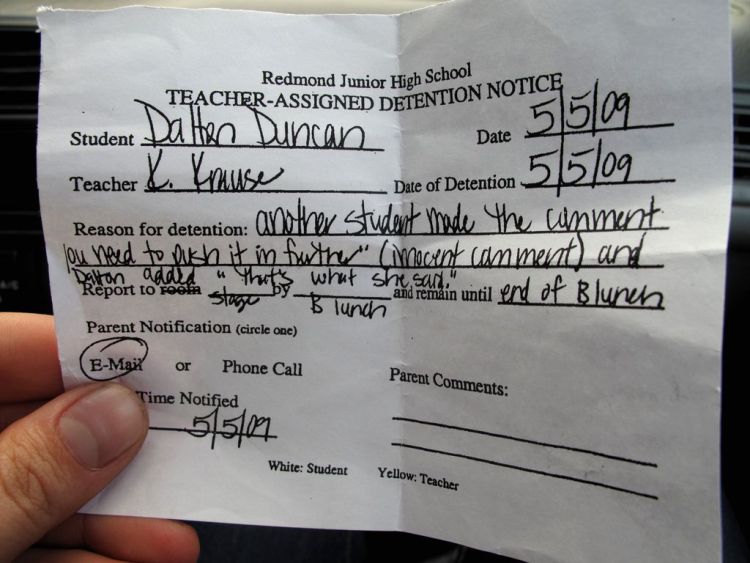 Redmond Junior High School
TEACHER-ASSIGNED DETENTION NOTICE
Student Dalton Duncan Date 5/5/09
Teacher K. Krause Date of Detention 5/5/09
Reason for detention: another student made the comment
"you need to push it in further" (innocent comment) and
Dalton added "that's what she said."
Report to room stage by B lunch and remain until end of B lunch
Parent Notification (circle one)
E-Mail or Phone Call
Parent Comments:
Time Notified
5/5/09
White: Student Yellow: Teacher